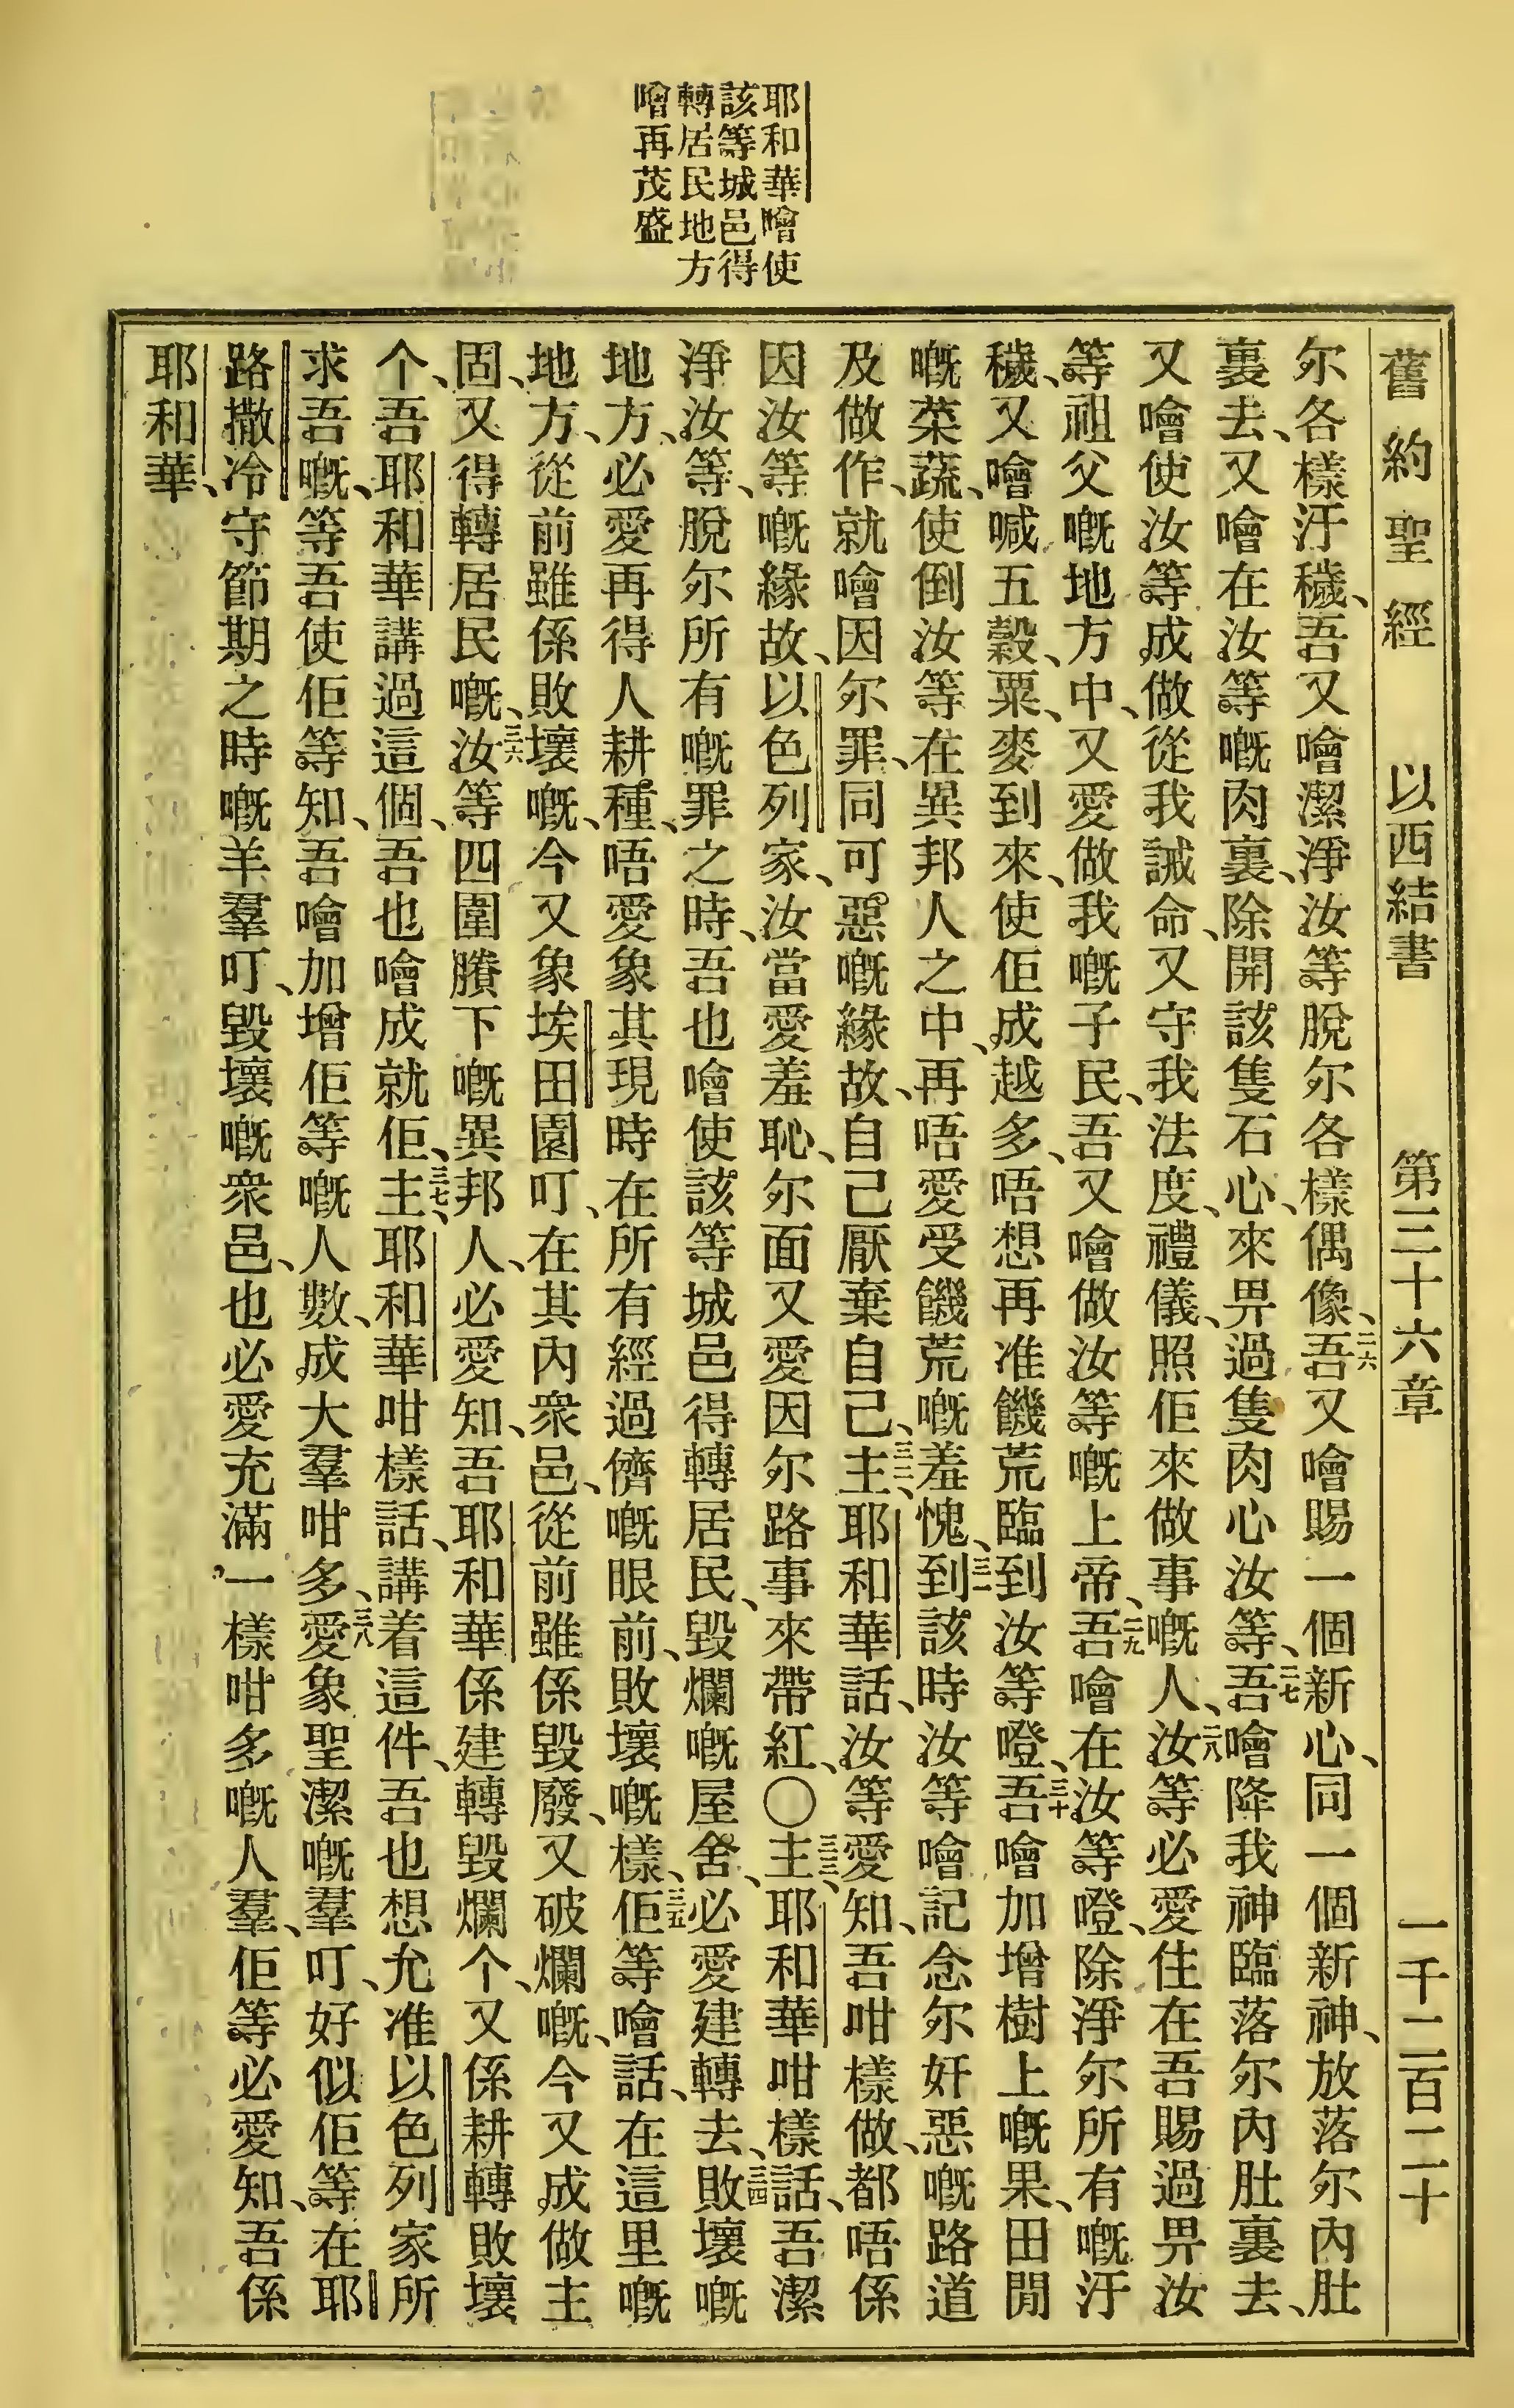 耶和華噲使
該等城邑得
轉居民地方
噲再茂盛
舊約聖經 以西結書 第三十六章 一千二百二十
尔各樣汙穢、吾又噲潔淨汝等脫尔各樣偶像、二六吾又噲賜一個新心、同一個新神、放落尔內肚
裏去、又噲在汝等嘅肉裏、除開該隻石心、來畀過隻肉心汝等、二七吾噲降我神臨落尔內肚裏去、
又噲使汝等成做從我誡命、又守我法度、禮儀、照佢來做事嘅人、二八汝等必愛住在吾賜過畀汝
等祖父嘅地方中、又愛做我嘅子民、吾又噲做汝等嘅上帝、二九吾噲在汝等噔、除淨尔所有嘅汙
穢、又噲喊五穀、粟、麥到來、使佢成越多、唔想再准饑荒臨到汝等噔、三十吾噲加增樹上嘅果、田閒
嘅菜蔬、使倒汝等在異邦人之中、再唔愛受饑荒嘅羞愧、三一到該時汝等噲記念尔奸惡嘅路道
及做作、就噲因尔罪、同可惡嘅緣故、自己厭棄自己、三二主、耶和華話、汝等愛知、吾咁樣做、都唔係
因汝等嘅緣故、以色列家、汝當愛羞恥、尔面又愛因尔路事來帶紅、〇三三主、耶和華咁樣話、吾潔
淨汝等、脫尔所有嘅罪之時、吾也噲使該等城邑得轉居民、毀爛嘅屋舍、必愛建轉去、三四敗壞嘅
地方、必愛再得人耕種、唔愛象其現時在所有經過儕嘅眼前、敗壞嘅樣、三五佢等噲話、在這里嘅
地方、從前雖係敗壞嘅、今又象埃田園叮、在其內衆邑、從前雖係毀廢、又破爛嘅、今又成做主
固、又得轉居民嘅、三六汝等四圍賸下嘅異邦人、必愛知、吾耶和華係建轉毀爛个、又係耕轉敗壞
个、吾耶和華講過這個、吾也噲成就佢、三七主、耶和華咁樣話、講着這件、吾也想允准以色列家所
求吾嘅、等吾使佢等知、吾噲加增佢等嘅人數、成大羣咁多、三八愛象聖潔嘅羣叮、好似佢等在耶
路撒冷守節期之時嘅羊羣叮、毀壞嘅衆邑、也必愛充滿一樣咁多嘅人羣、佢等必愛知、吾係
耶和華、